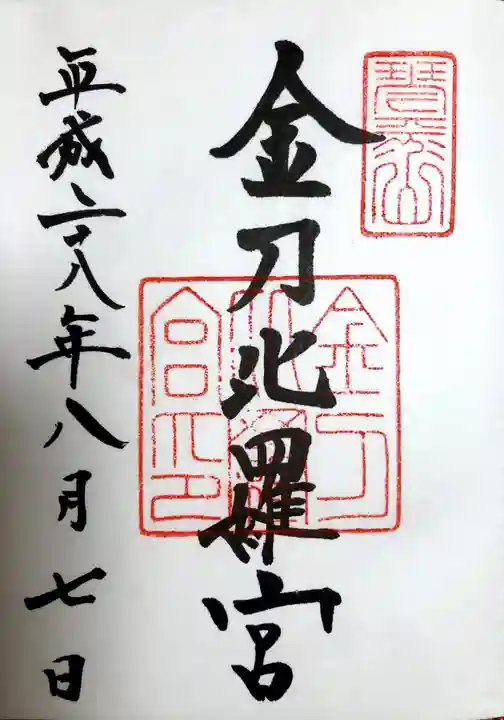 琴平山
金刀比羅宮
金刀比羅宮印
平成二十八年八月七日